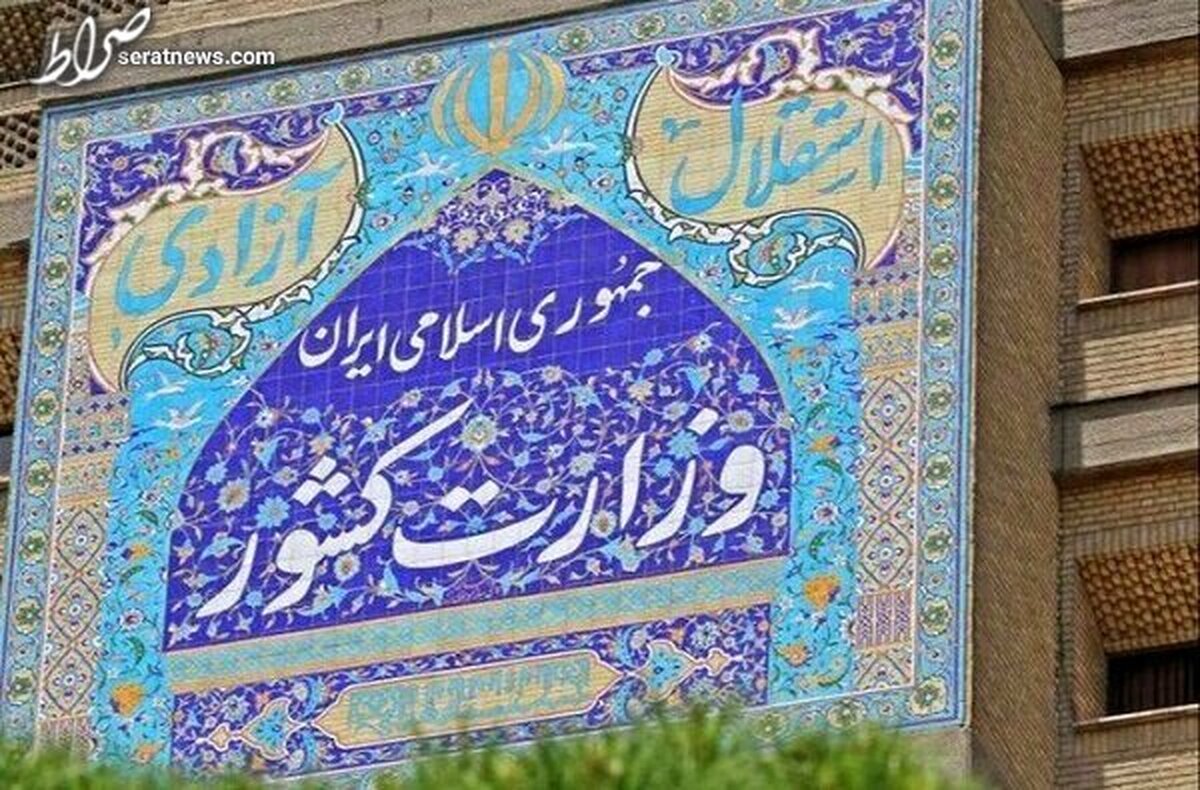 صراط
seratnews.com
استقلال
آزادی
جمهوری اسلامی ایران
وزارت کشور